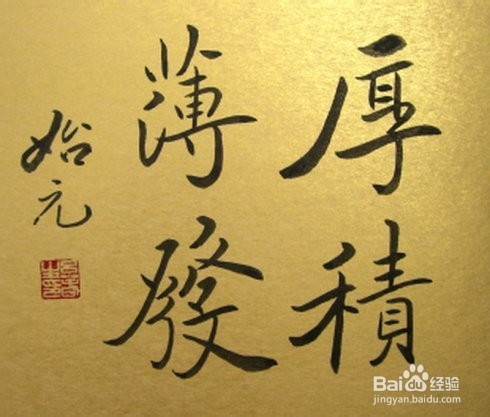 厚積
薄發
始元
Bai 经验
jingyan.baidu.com